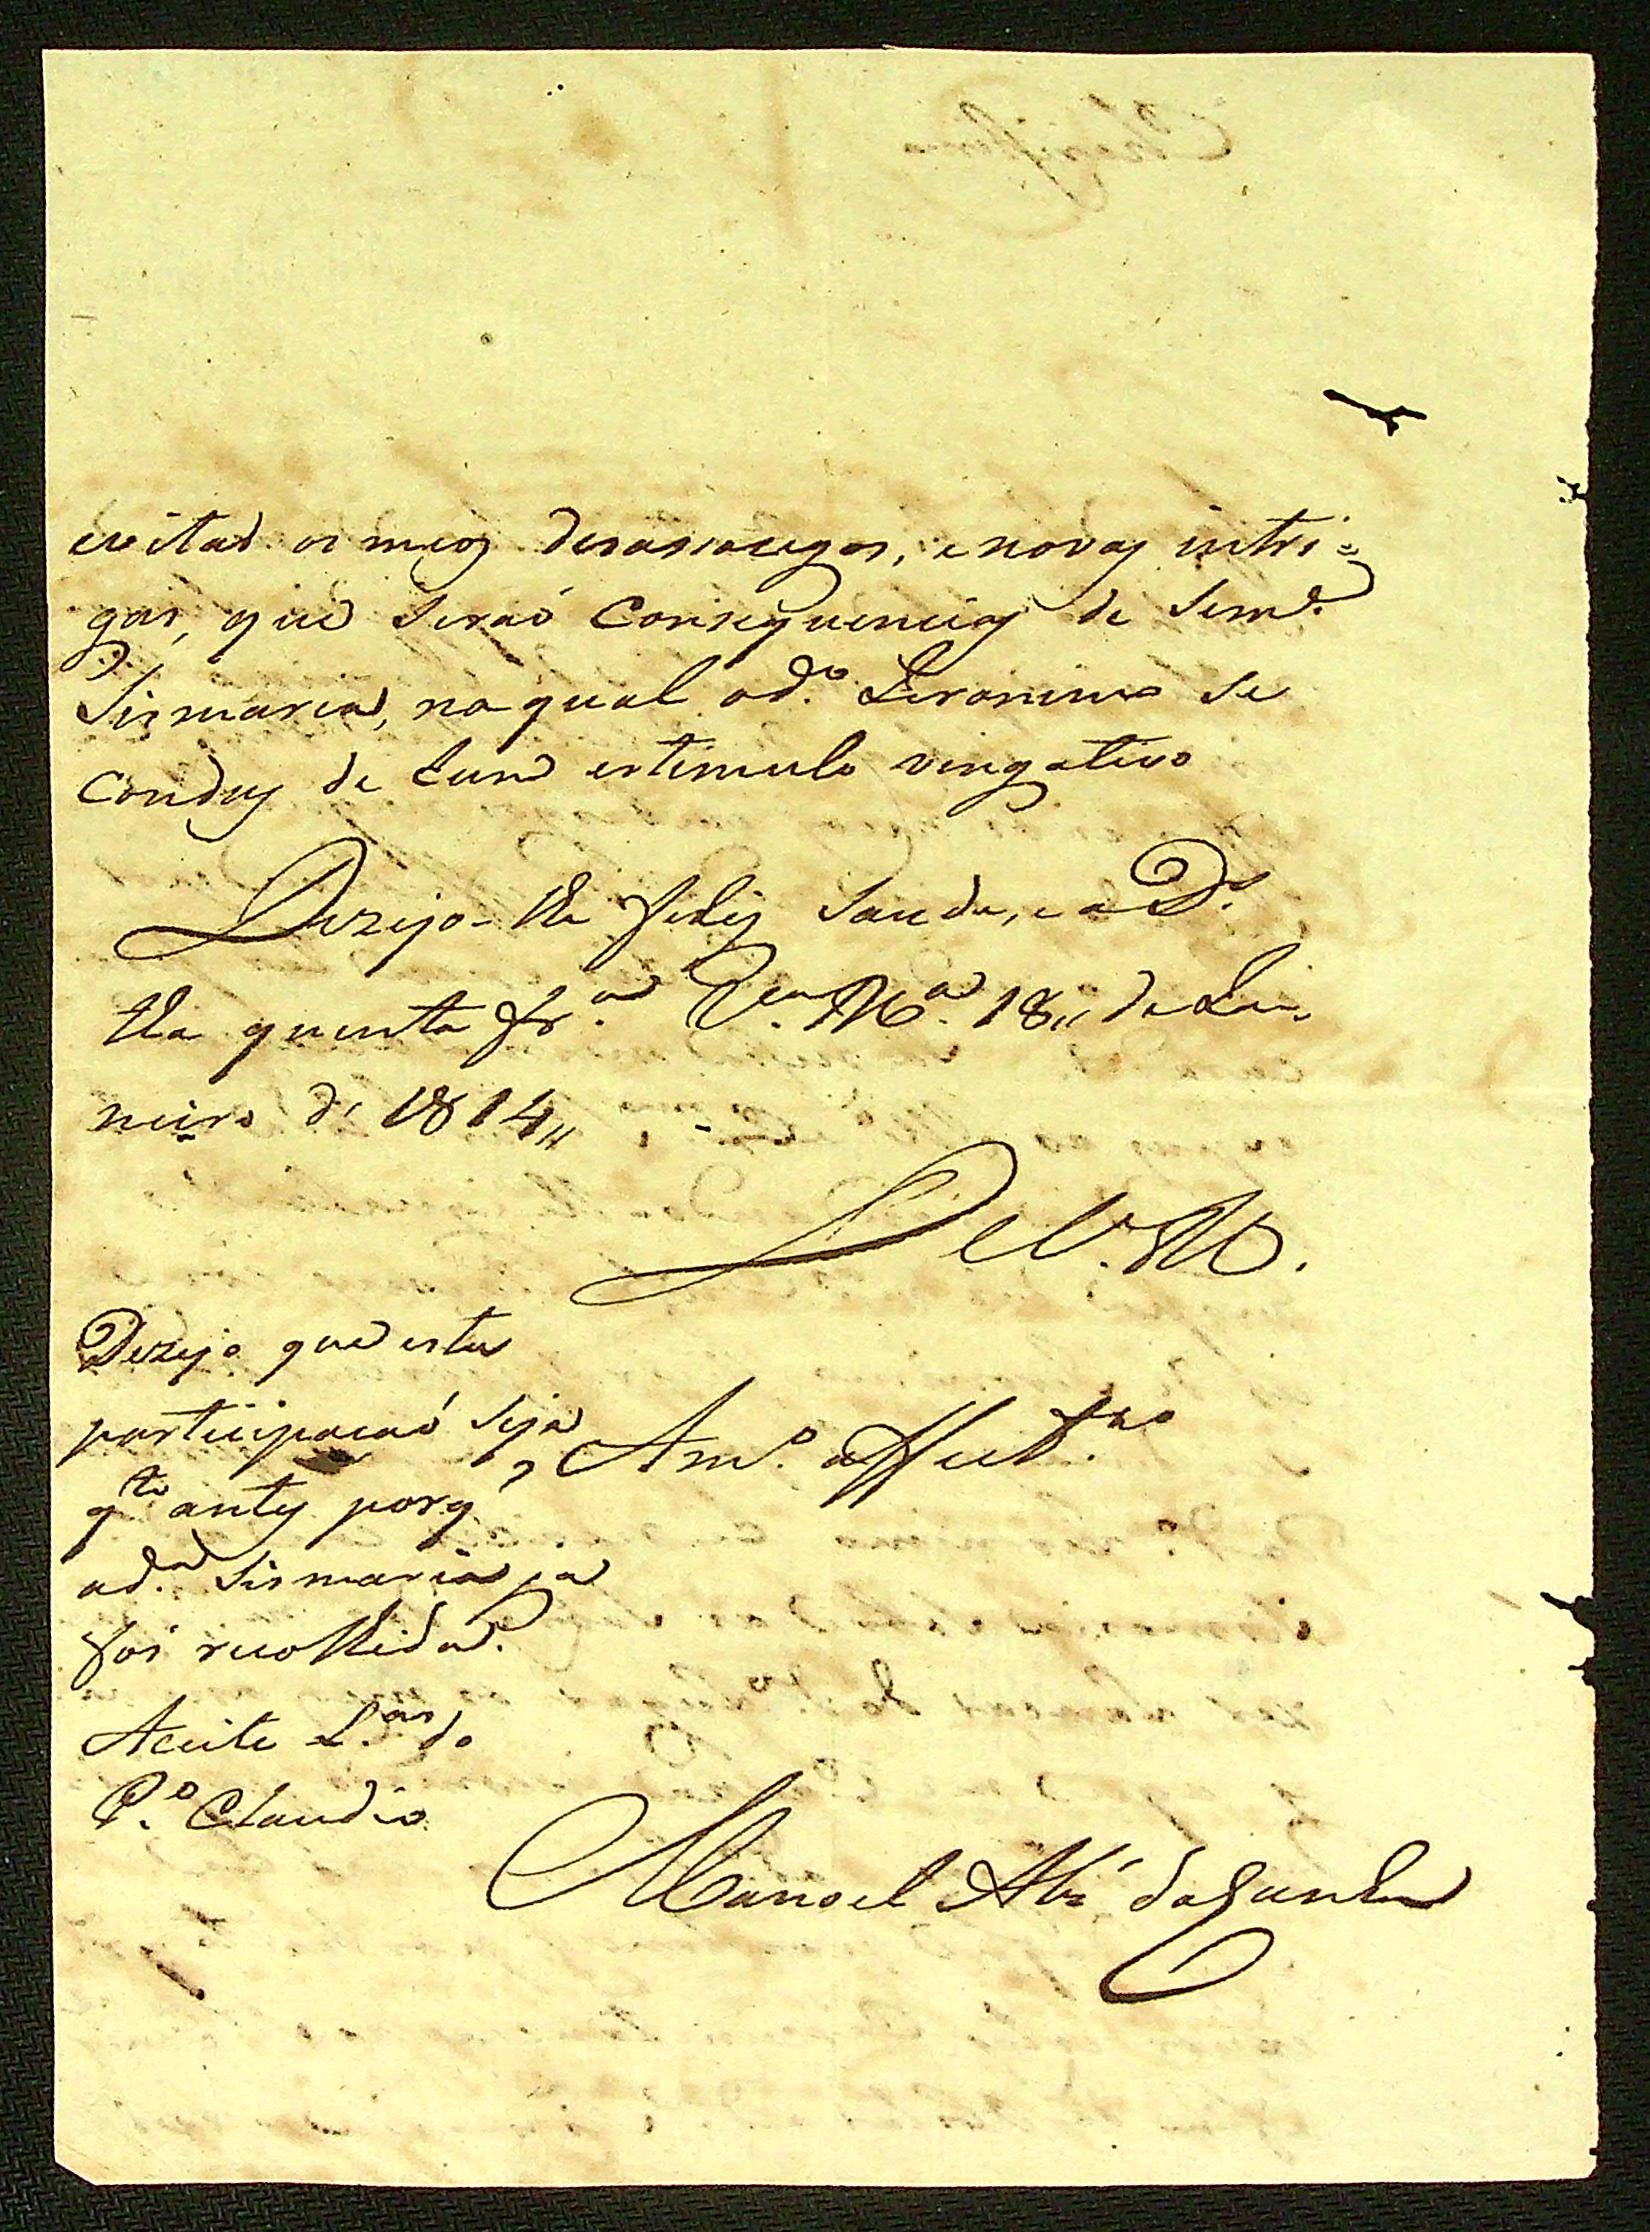 evitar os meos desasocegos, e novas intri=
gas, que seraó Consequencias de Seme.
Sismaria, na qual o do. Jeronimo se
Conduz de hum estimulo vingativo
Dezejo-lhe feliz Saude, e a Ds.
lhe guarde Va. Ma. 18,, de Ja,,
neiro de 1814,,
De V. M.
Amo. affecto.
Dezejo que esta
participacaó Seja
qto antes porq'
a da. Sismaria ja
foi recolhida.
Aceite L.as do
Po. Claudio
Manoel Alz' da Cunha